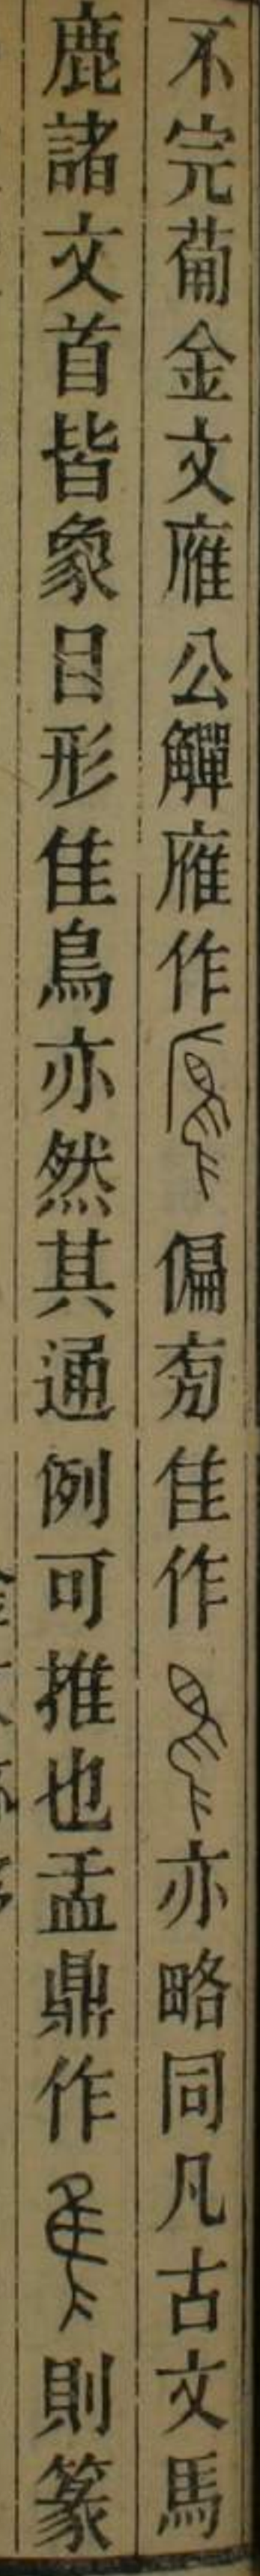 不完葡金文雁公觶雁作偏㫄隹作亦略同凡古文馬
鹿諸文首皆象目形隹鳥亦然其通例可推也盂鼎作則篆